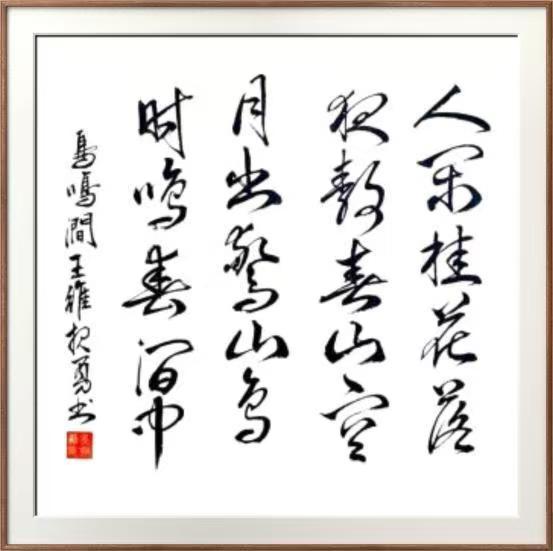 人闲桂花落
夜静春山空
月出惊山鸟
时鸣春涧中
鳥鳴澗王維勇书